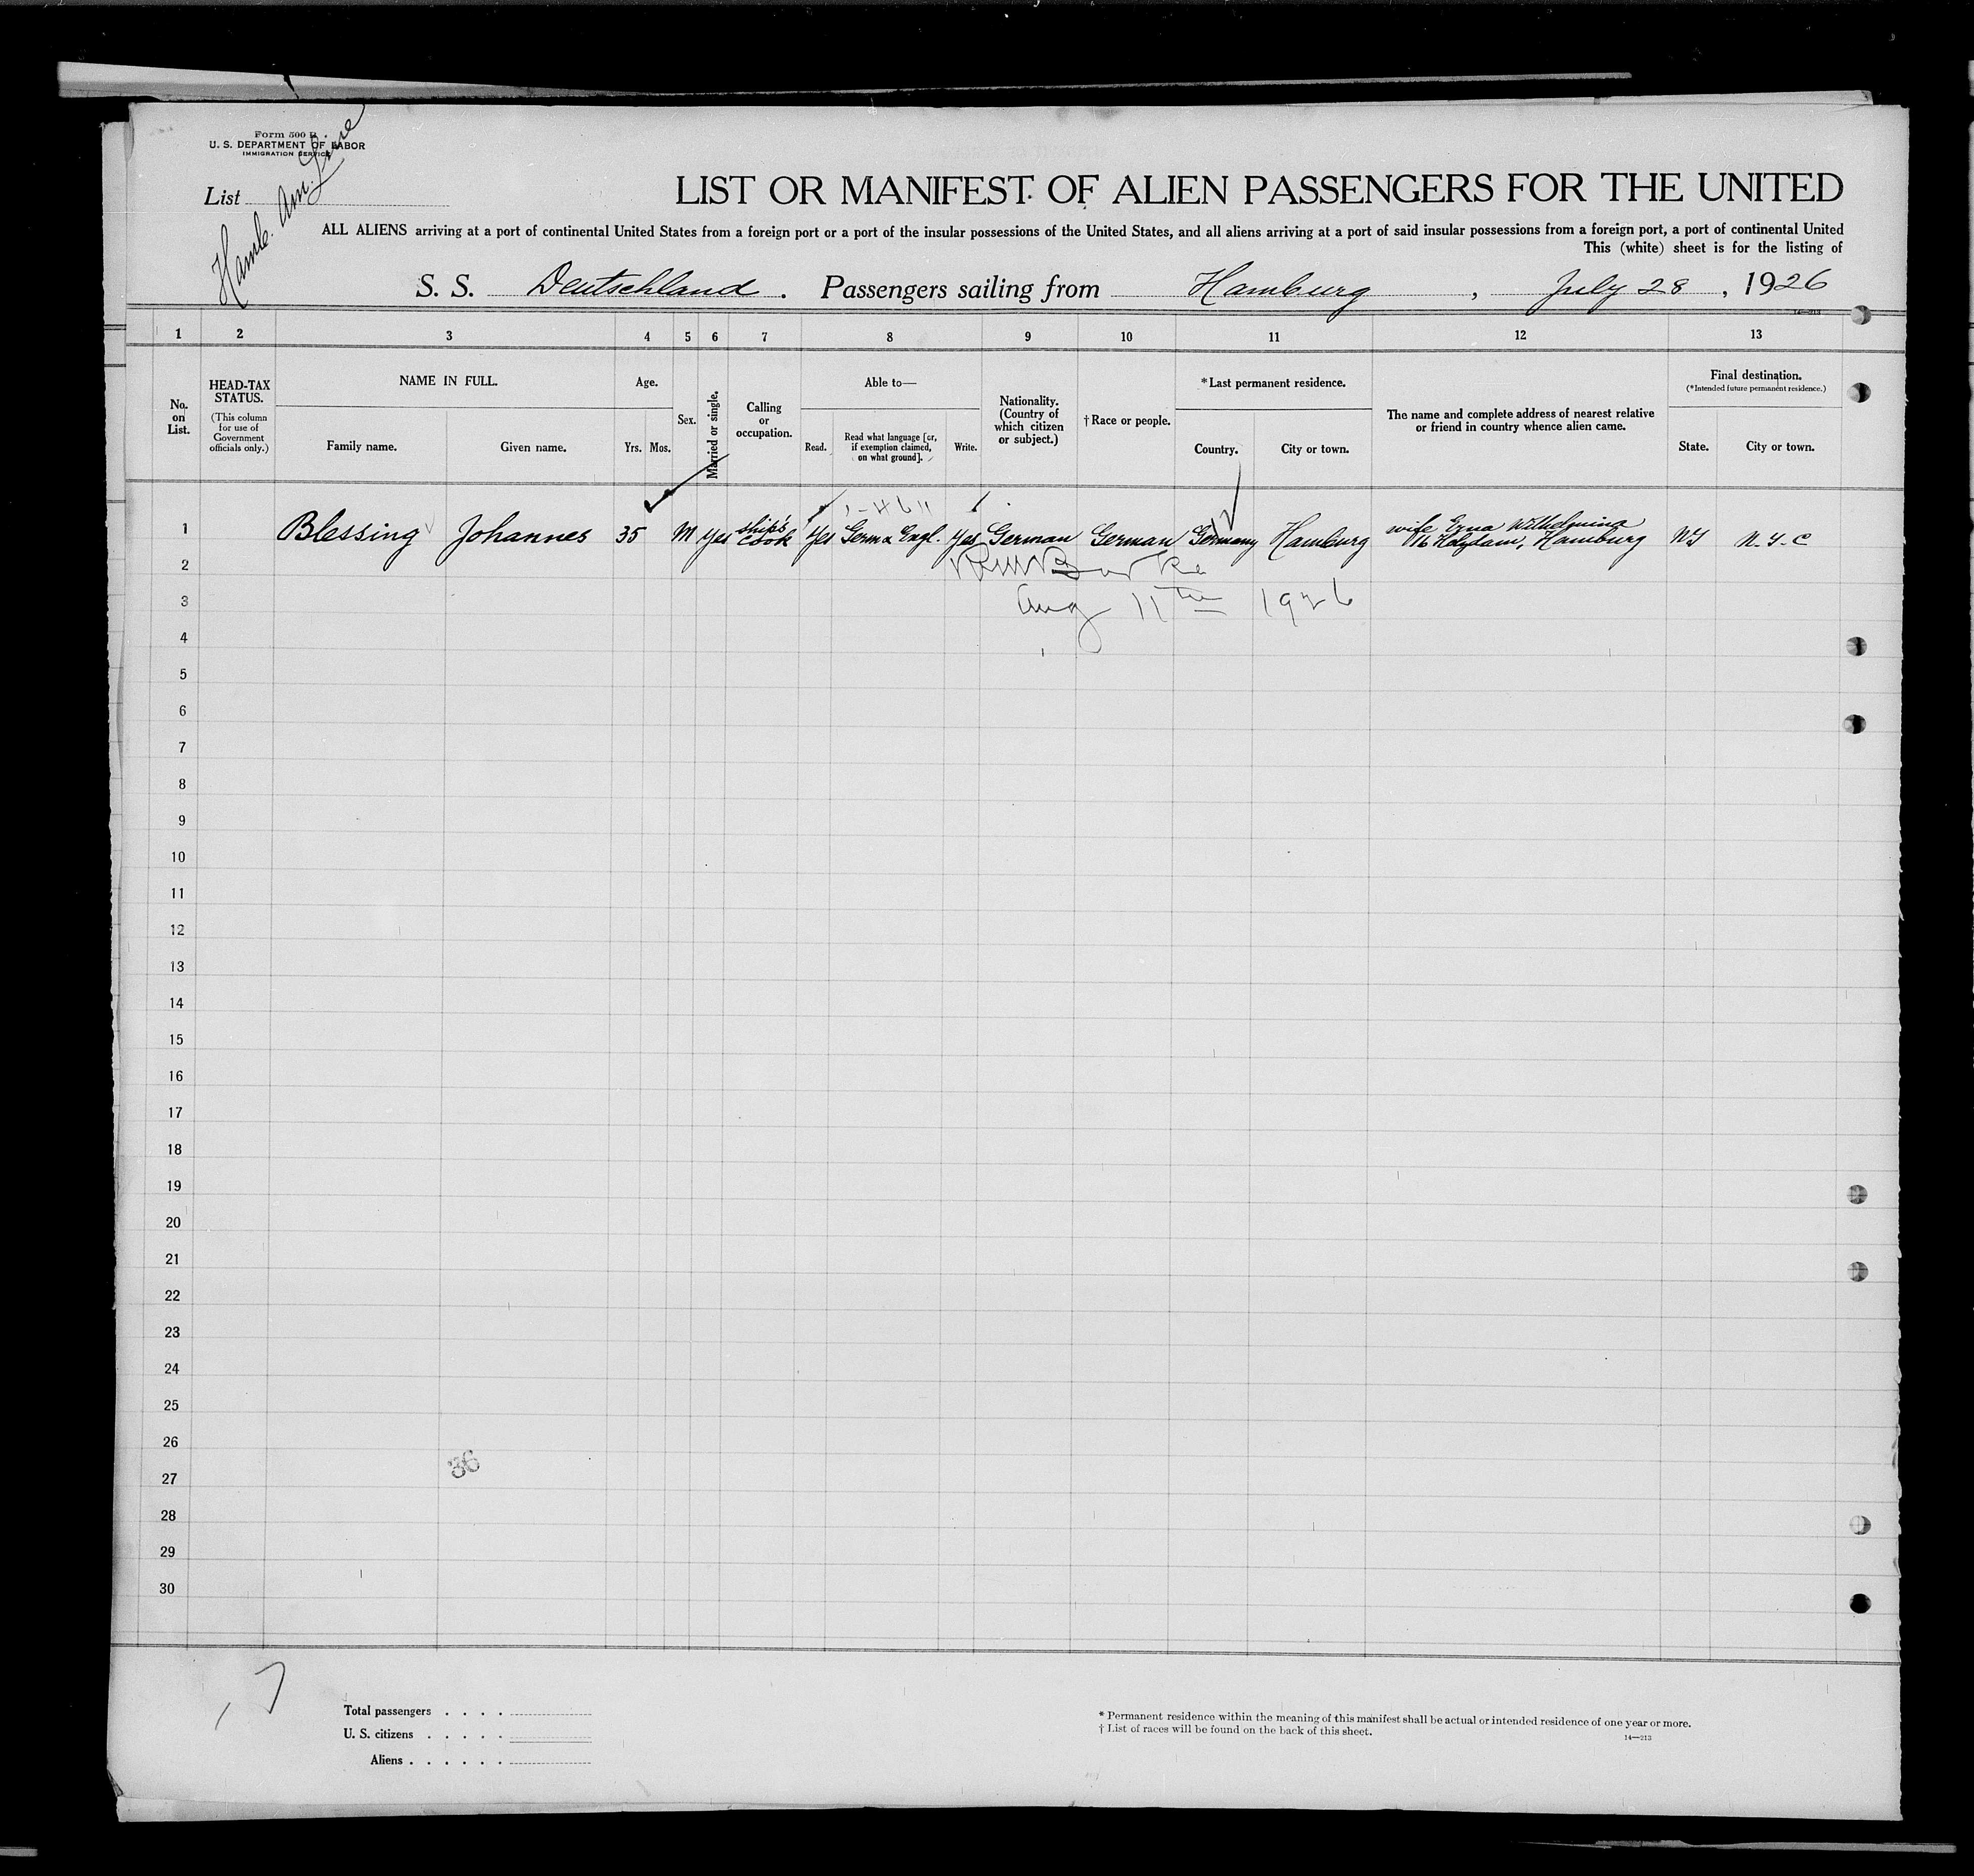 Form 500 B
U. S. DEPARTMENT OF LABOR
IMMIGRATION SERVICE
Hamb. Am. Line
List
LIST OR MANIFEST OF ALIEN PASSENGERS FOR THE UNITED
ALL ALIENS arriving at a port of continental United States from a foreign port or a port of the insular possessions of the United States, and all aliens arriving at a port of said insular possessions from a foreign port, a port of continental United
This (white) sheet is for the listing of
S. S. Deutschland . Passengers sailing from Hamburg , July 28 , 1926
14—213
1 2 3 4 5 6 7 8 9 10 11 12 13
No. on List.
HEAD-TAX STATUS.
(This column for use of Government officials only.)
NAME IN FULL.
Family name. Given name.
Age.
Yrs. Mos.
Sex.
Married or single.
Calling or occupation.
Able to—
Read. Read what language [or, if exemption claimed, on what ground]. Write.
Nationality. (Country of which citizen or subject.)
† Race or people.
* Last permanent residence.
Country. City or town.
The name and complete address of nearest relative or friend in country whence alien came.
Final destination.
(*Intended future permanent residence.)
State. City or town.
1 Blessing Johannes 35 M Yes ship's cook Yes Germ & Engl. Yes German German Germany Hamburg wife Erna Wilhelmina Hamburg NY N.Y.C
2
3 Aug 11th 1926
4
5
6
7
8
9
10
11
12
13
14
15
16
17
18
19
20
21
22
23
24
25
26
36
27
28
29
30
Total passengers . . . .
U. S. citizens . . . . .
Aliens . . . . . .
* Permanent residence within the meaning of this manifest shall be actual or intended residence of one year or more.
† List of races will be found on the back of this sheet.
14—213